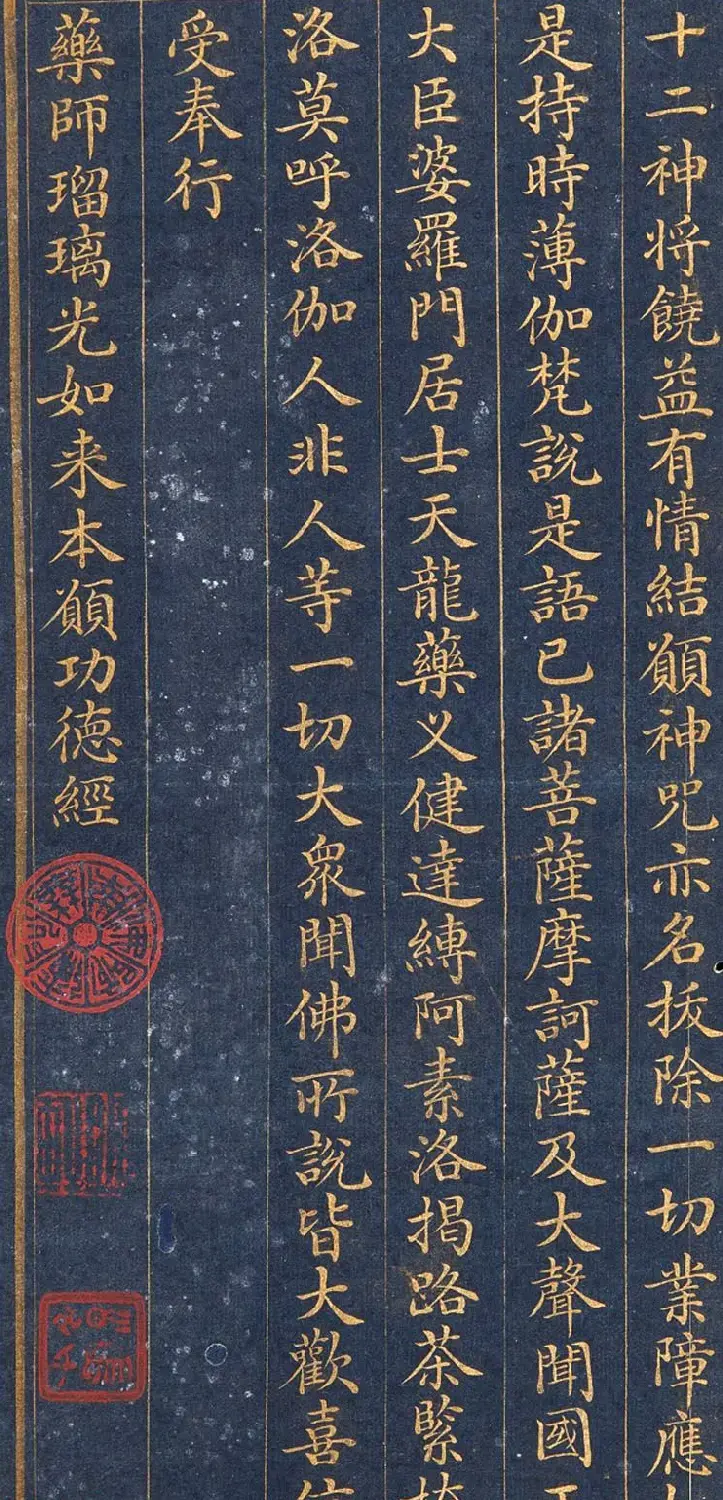 十二神将饒益有情結願神咒亦名拔除一切業障應
是持時薄伽梵說是語已諸菩薩摩訶薩及大聲聞國
大臣婆羅門居士天龍藥义健達縛阿素洛揭路茶緊
洛莫呼洛伽人非人等一切大眾聞佛所說皆大歡喜
受奉行
藥師瑠璃光如来本願功德經